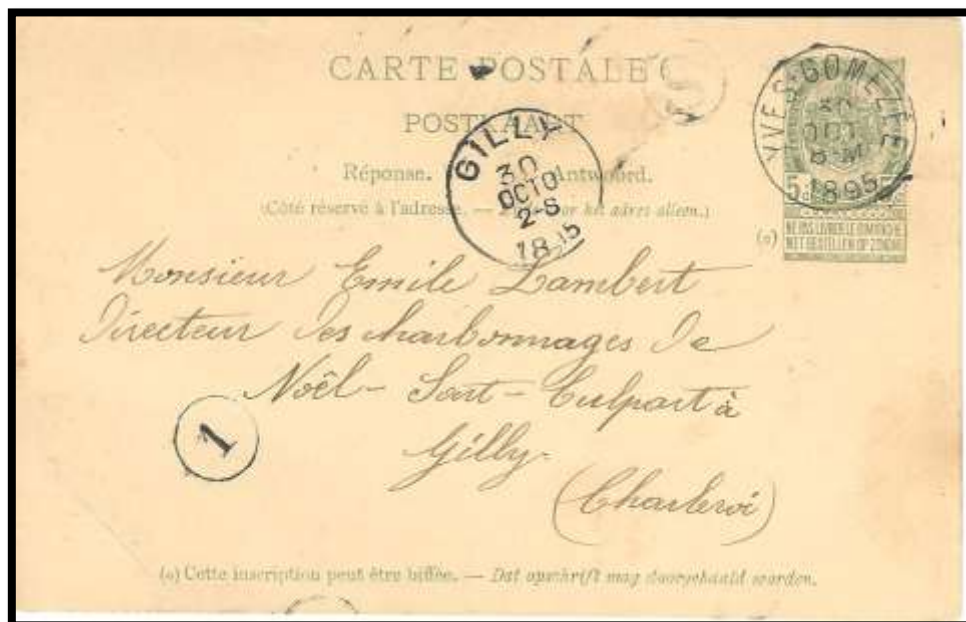 CARTE POSTALE
POSTKAART
Réponse. Antwoord.
(Côté réservé à l'adresse. — het adres alleen.)
GILLY
30
OCTO
2-S
18 5
YVES-GOMEZÉE
30
OCT
8-M
1895
5
NE PAS LIVRER LE DIMANCHE
NIET BESTELLEN OP ZONDAG
(o)
S
Monsieur Emile Lambert
Directeur des charbonnages de
Noël-Sart-Culpart à
Gilly-
(Charleroi)
1
(o) Cette inscription peut être biffée. — Dat opschrift mag doorgehaald worden.